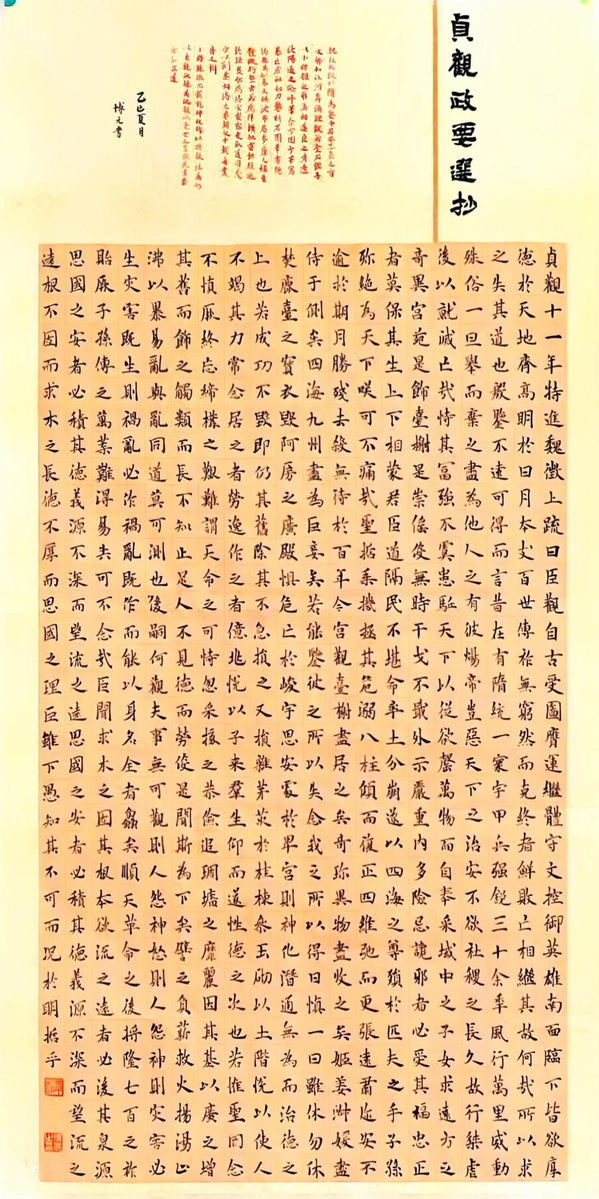 貞觀政要選抄
乙巳夏月
博元書
貞觀十一年特進魏徵上疏曰臣觀自古受圖膺運繼體守文控御英雄南面臨下皆欲厚
德於天地齊高明於日月本支百世傳祚無窮然而克終者鮮敗亡相繼其故何哉所以求
之失其道也殷鑒不遠可得而言昔在有隋統一寰宇甲兵强銳三十余年風行萬里威動
殊俗一旦舉而棄之盡為他人之有彼煬帝豈惡天下之治安不欲社稷之長久故行桀虐
後以就滅亡哉恃其冨強不虞患駈天下以從欲罄萬物而自奉采域中之子女求遠方之
奇異宮苑是飾臺榭是崇傜役無時干戈不戢外示嚴重內多險忌讒邪者必受其福忠正
者莫保其生上下相蒙君臣道隔民不堪命率土分崩遂以四海之尊殞於匹夫之手子孫
弥絕為天下咲可不痛哉聖哲乘機拯其危溺八柱傾而復正四維弛而更張遠肅迩安不
逾於期月勝殘去殺無待於百年今宮觀臺榭盡居之矣奇珍異物盡收之矣姬姜淑媛盡
侍于側矣四海九州盡為臣妾矣若能鑒彼之所以失念我之所以得日慎一日雖休勿休
焚鹿臺之寳衣毀阿房之廣殿惧危亡於峻宇思安處於卑宮則神化潛通無為而治德之
上也若成功不毀即仍其舊除其不急損之又損雜茅茨於桂棟叅玉砌以土階悅以使人
不竭其力常念居之者勞逸作之者億兆悅以子来羣生仰而遂性德之次也若惟聖罔念
不慎厥終忘締構之艱難謂天命之可恃忽采椽之恭儉追雕墻之靡麗因其基以廣之增
其舊而飾之觸類而長不知止足人不見德而勞役是聞斯為下矣譬之負薪救火揚湯止
沸以暴易亂與亂同道莫可測也後嗣何觀夫事無可觀則人怨神怒則人怨神則災害必
生災害既生則禍亂必作禍亂既作而能以身名全者鮮矣順天革命之後將隆七百之祚
貽厥子孫傳之萬葉難得易失可不念哉臣聞求木之固其根本欲流之遠者必後其泉源
思國之安者必積其德義源不深而望流之遠思國之安者必積其德義源不深而望流之
遠根不固而求木之長德不厚而思國之理臣雖下愚知其不可而況於明哲乎